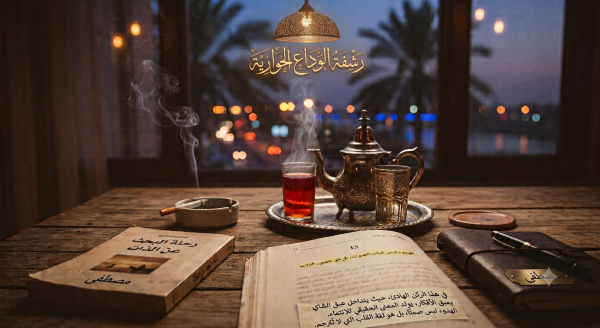 رَشْفَةُ الْوَدَاعِ الحِوَارِيَّة
رحلة البحث
عن الذات
مصطفى
في هذا الركن الهادئ، حيث يتداخل عبق الشاي
بعبق الأفكار، يولد المعنى الحقيقي للانتماء.
الهدوء ليس صمتًا، بل هو لغة القلب التي لا تُترجم.